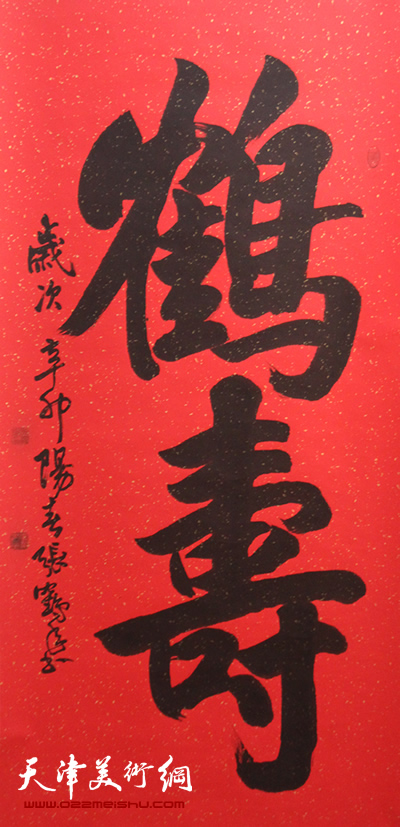 鶴壽
歲次辛卯陽春張鶴年書
天津美術網
www.022meishu.com